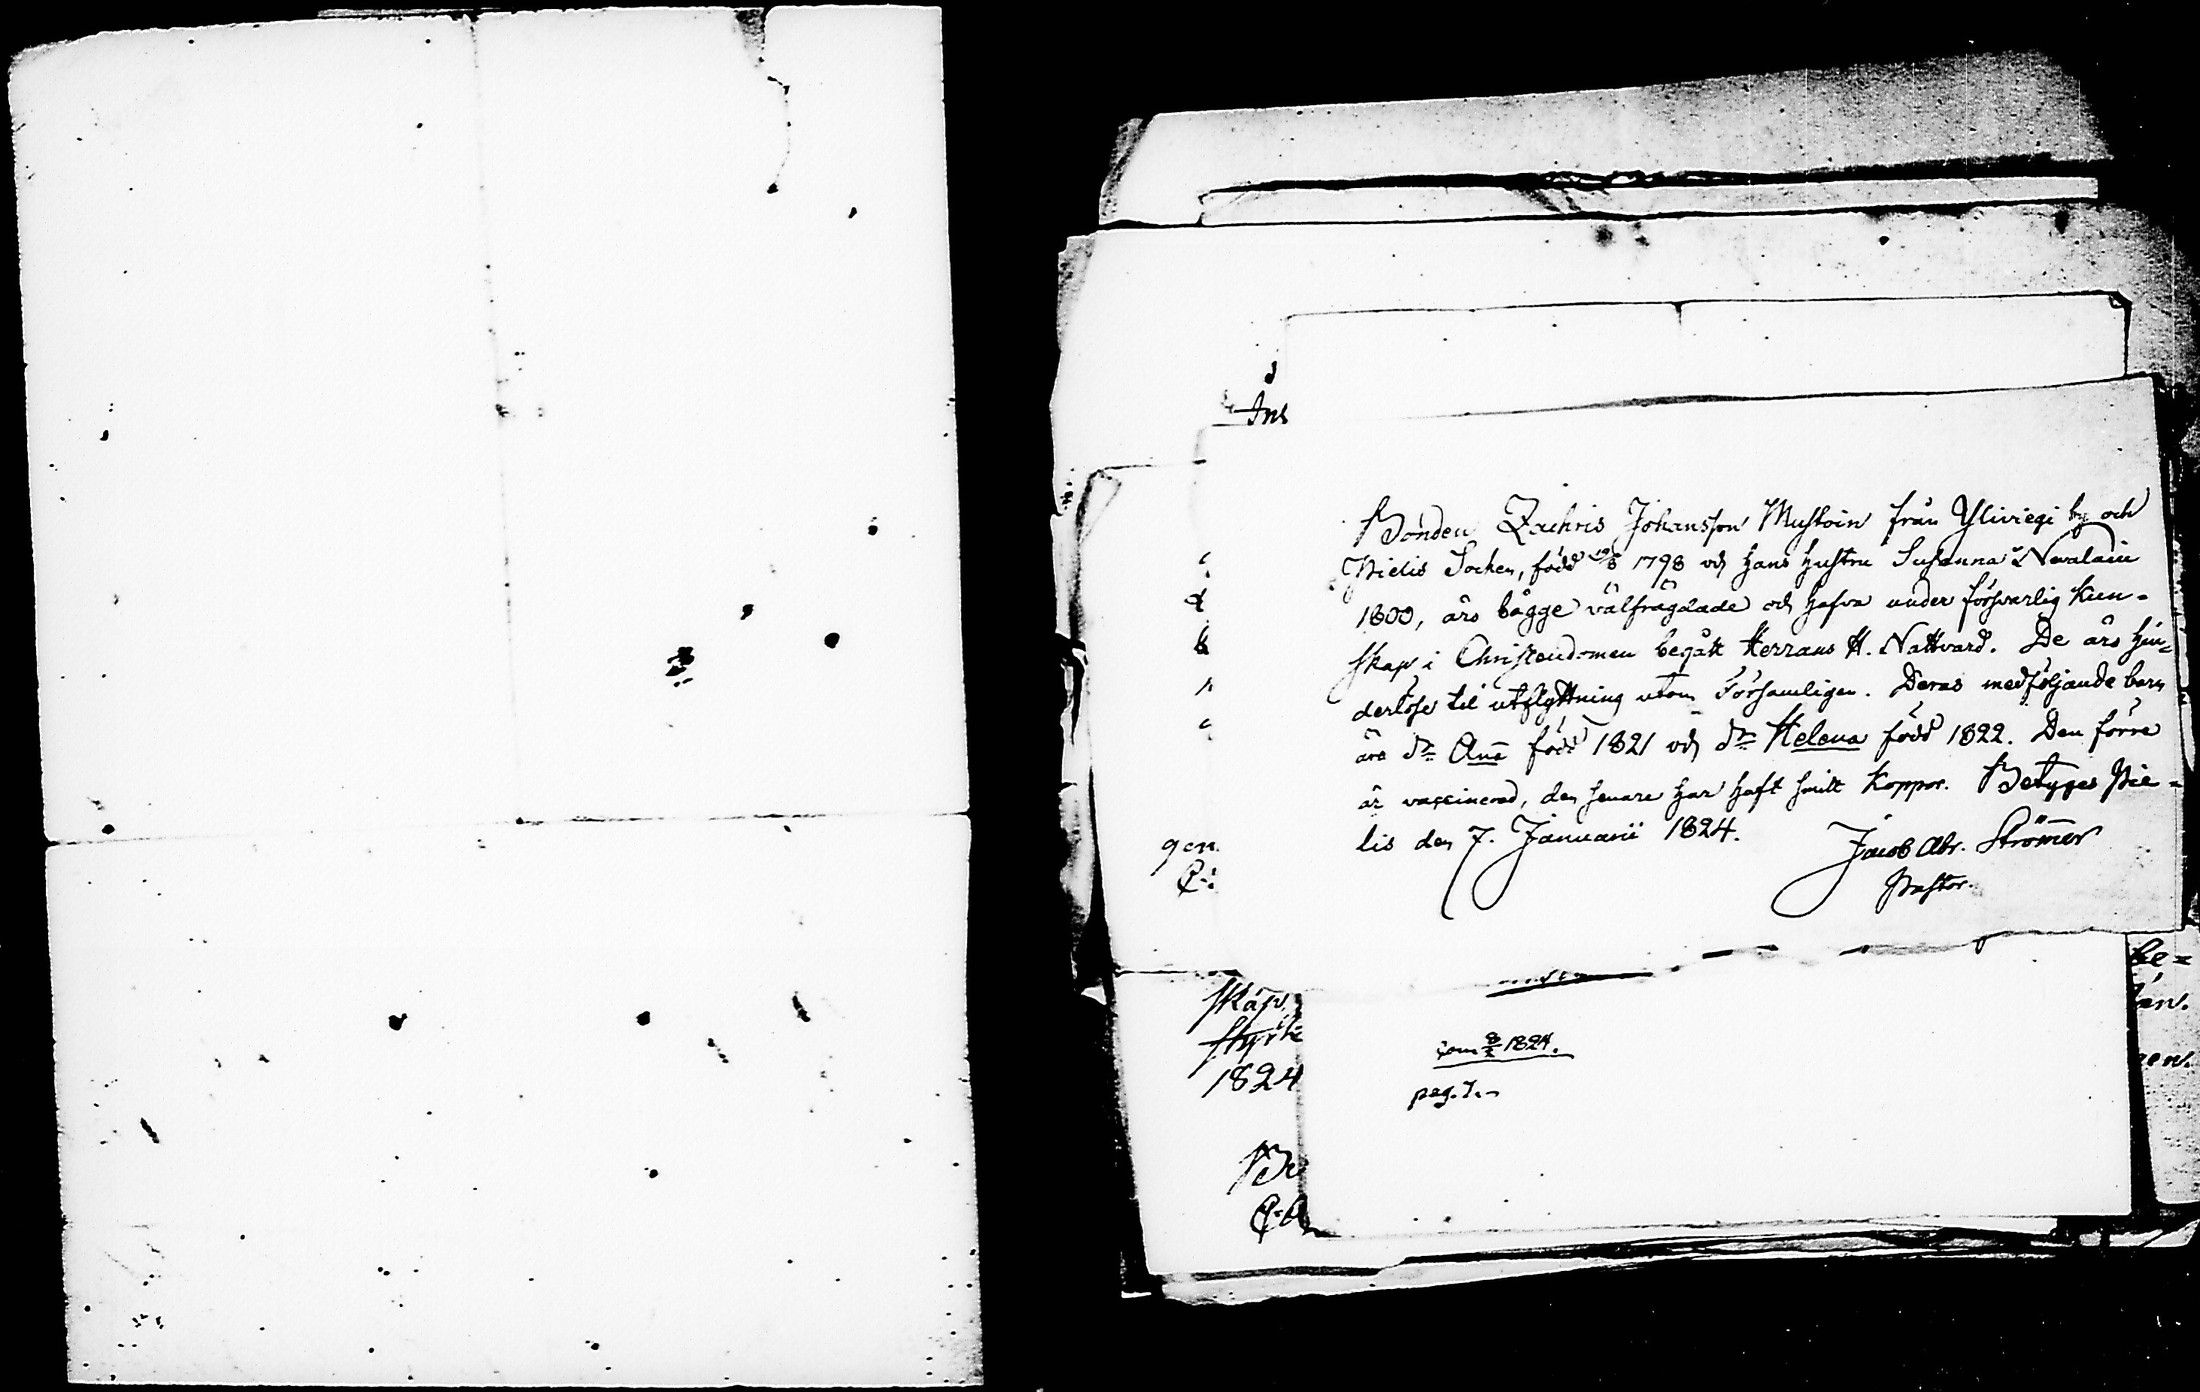 Ins
Bonden Zachris Johansson Mustoin från Yliviegi by och
Pielis Socken, född 19/8 1798 och hans hustru Susanna Nevalain
1800, äro bägge välfrägdade och hafva under försvarlig kun-
skap i Christendomen begått Herrans H. Nattvard. De äro hin-
derlöse til utflyttning utom Församlingen. Deras medföljande barn
äro dr. Anna född 1821 och dr. Helena född 1822. Den förre
är vaccinerad, den senare har haft smitt koppor. Betyges Pie-
lis den 7. Januarii 1824. Jacob Abr. Strömmer
Pastor.
gen
skap
styrk
1824
Be
be-
en.
pag. 7.
1824.